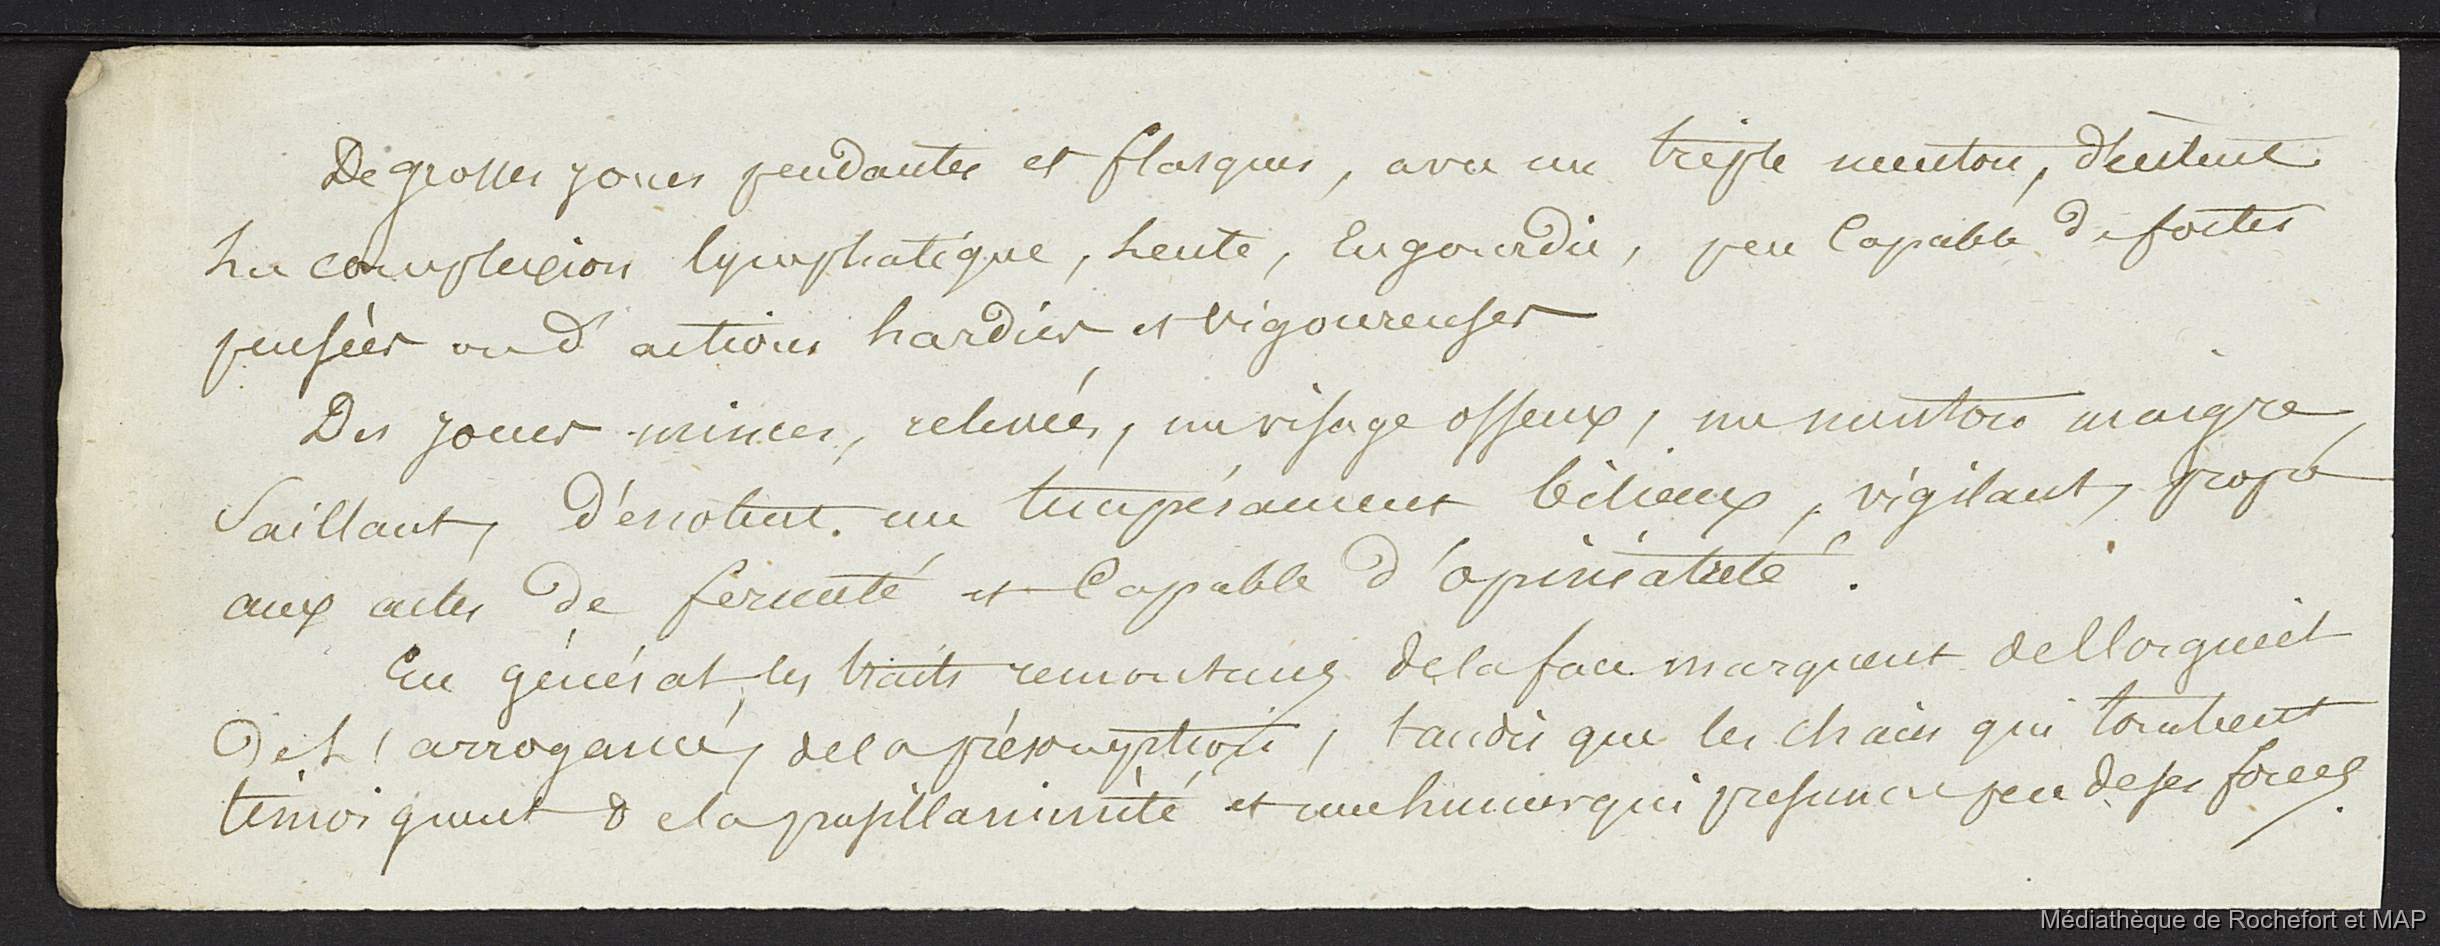 De grosses joues pendantes et flasques, avec un triple menton,
la complexion lymphatique, lente, engourdie, peu capable de fortes
pensées ou d'actions hardies et vigoureuses
Des joues minces, relevées, un visage osseux, un menton maigre,
saillant, dénotent un tempérament bilieux, vigilant, propre
aux actes de fermeté et capable d'opiniatreté.
En général les traits remontans de la face marquent de l'orgueil
de l'arrogance, de la présomption, tandis que les chairs qui tombent
témoignent de la pusillanimité et une humeur qui présume peu de ses forces.
Médiathèque de Rochefort et MAP